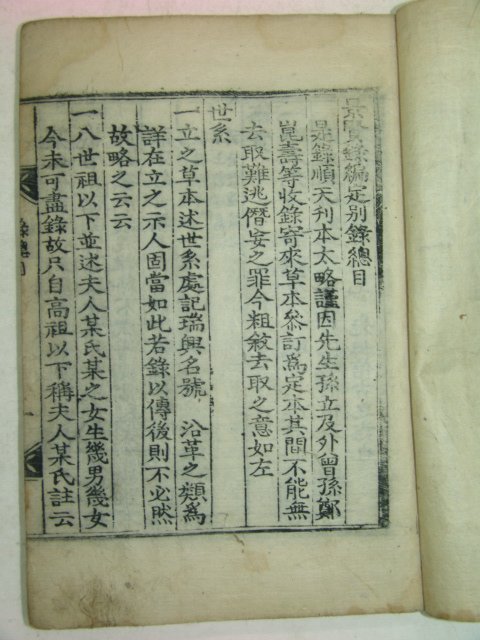 景賢錄編定別錄總目
是錄順天刋本太略謹因先生孫立及外曾孫鄭
崑壽等收錄寄來草本參訂爲定本其間不能無
去取難逃僭妄之罪今粗敘去取之意如左
世系
一立之草本述世系處記瑞興名號 沿革之類爲
詳在立之示人固當如此若錄以傳後則不必然
故略之云云
一八世祖以下並述夫人某氏某之女生幾男幾女
今未可盡錄故只自高祖以下稱夫人某氏註云